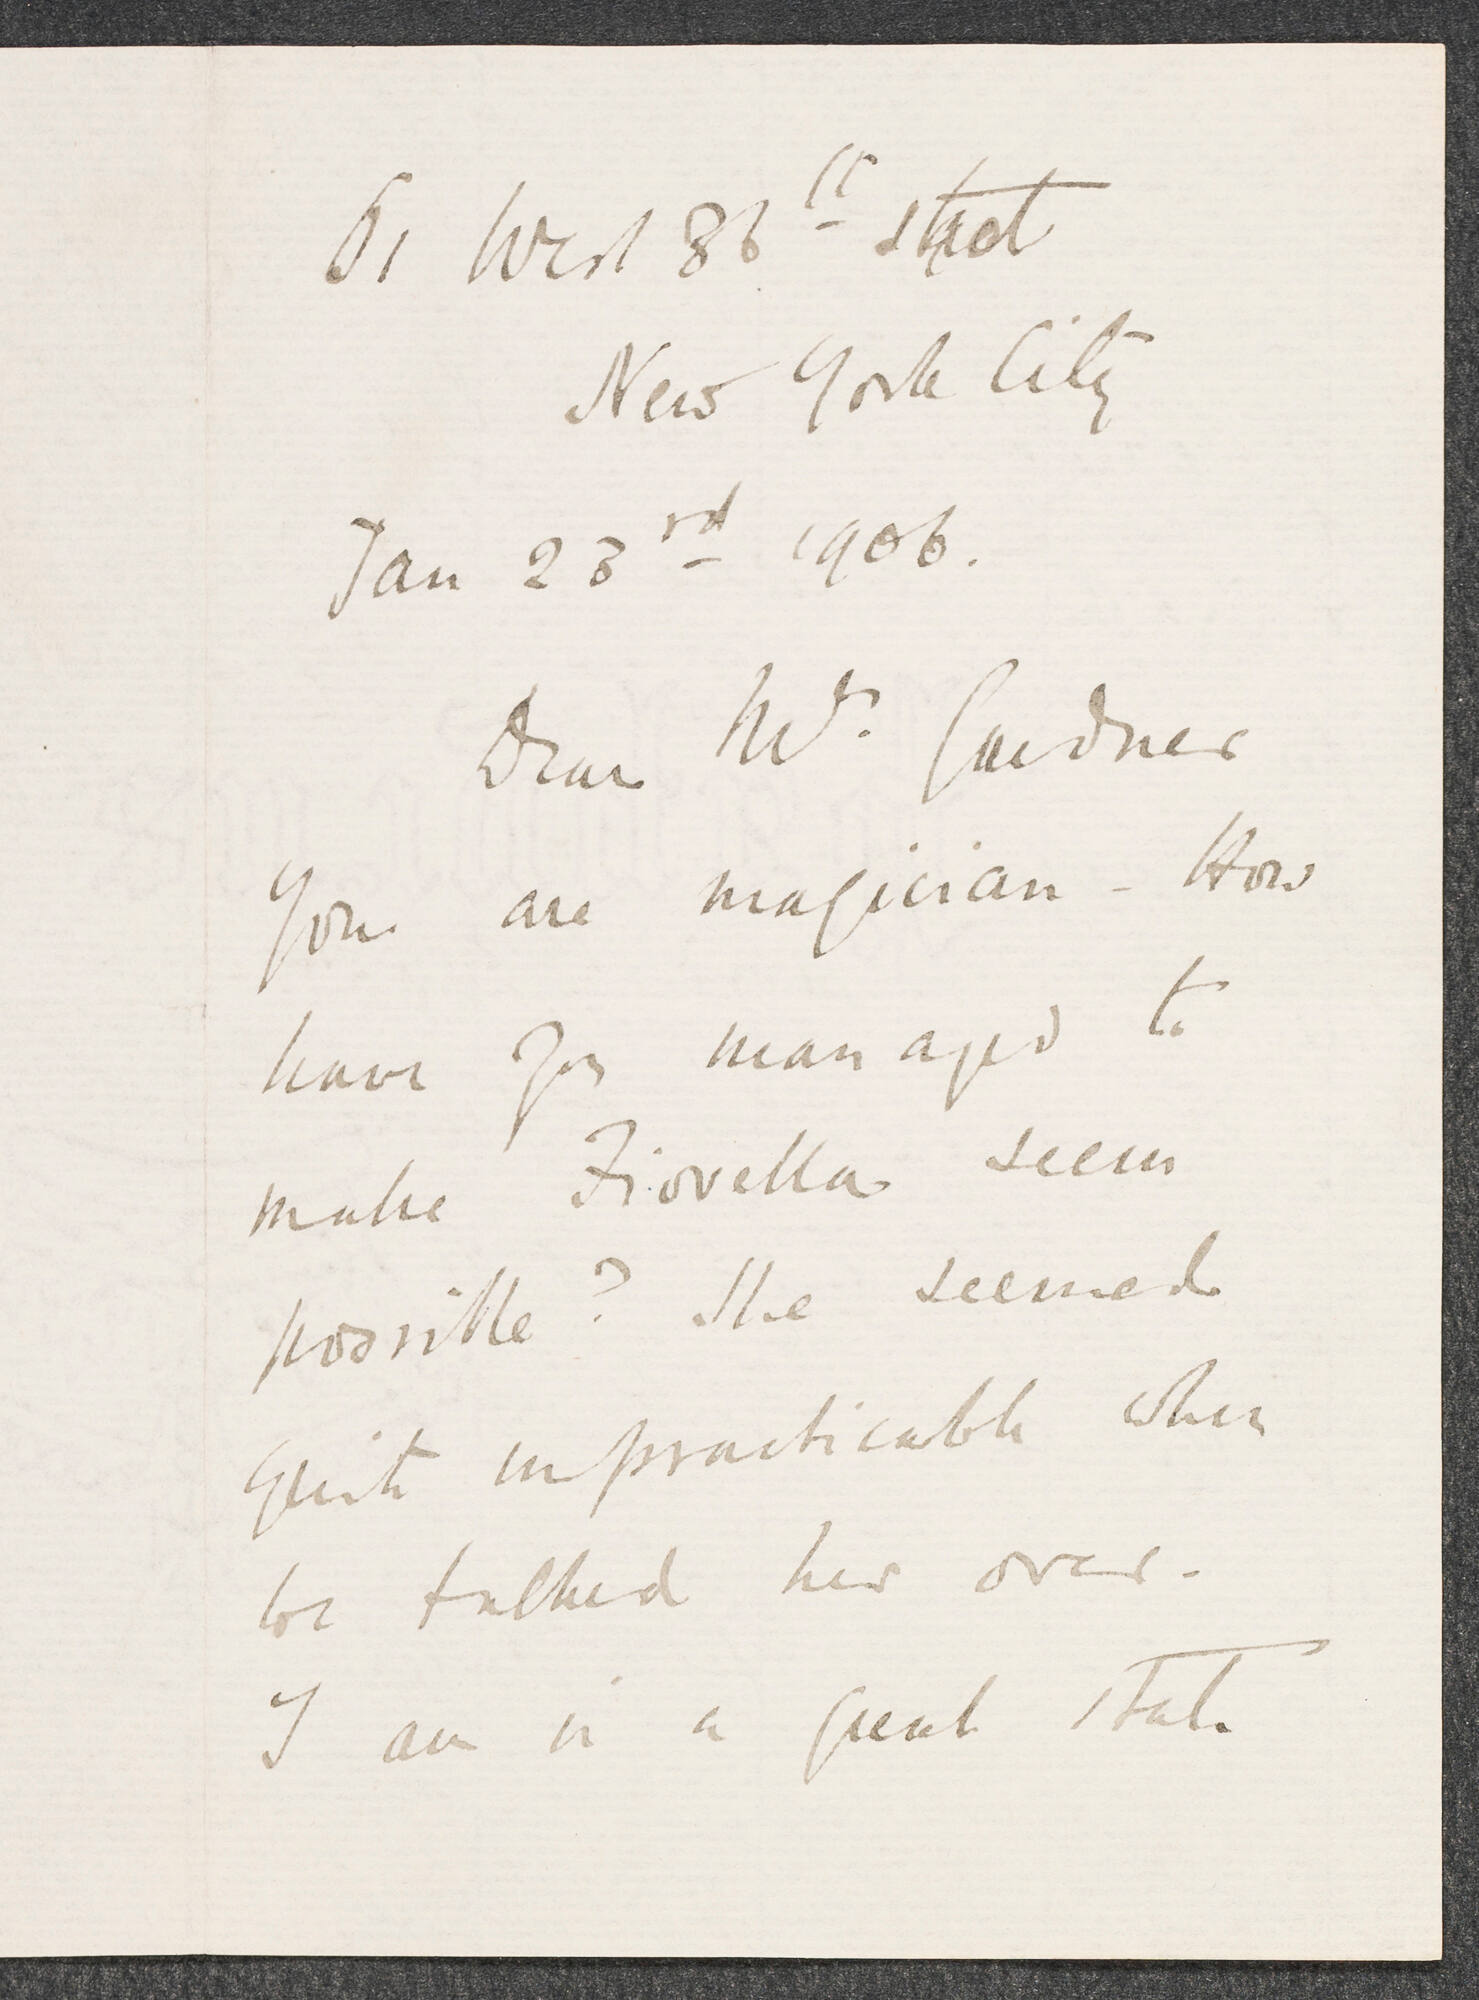 West 86th Street
New York City
Jan 23rd 1906.
Dear Mrs. Gardner
You are magician - How
have you managed to
make Fiorella seem
possible? She seemed
quite impracticable when
we talked her over.
I am in a great state